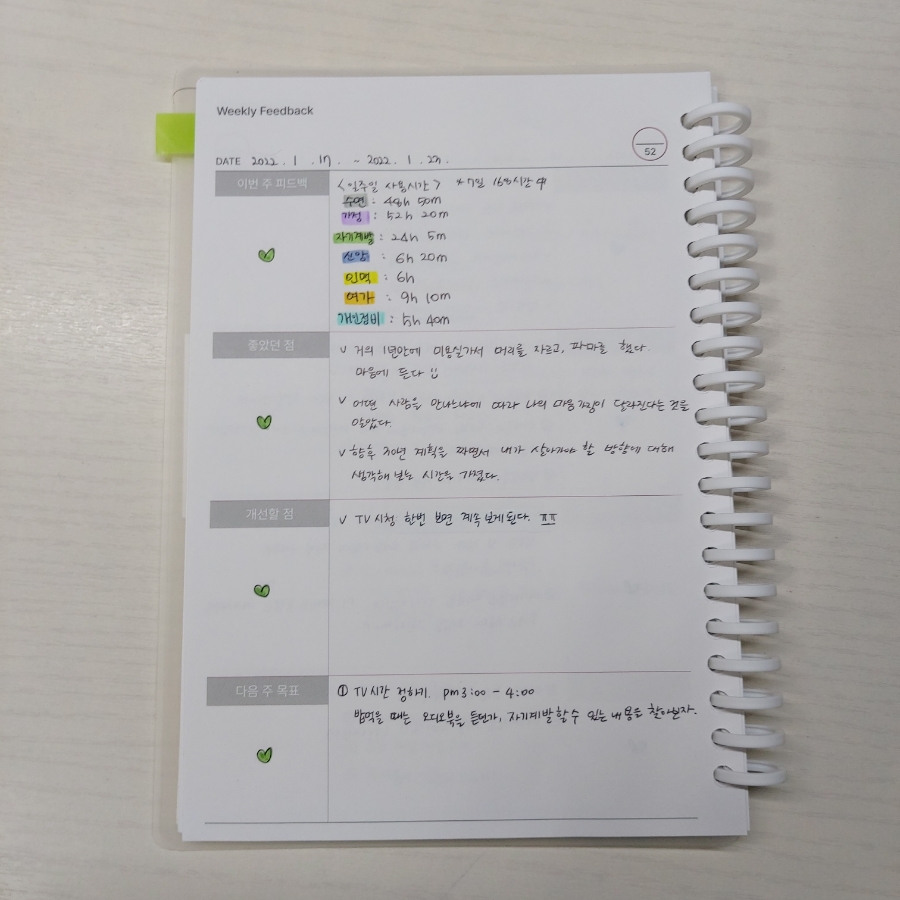 Weekly Feedback
52
DATE 2022. 1. 17. ~ 2022. 1. 23.
이번 주 피드백
<일주일 사용시간> *7일 168시간 中
수면 : 48h 50m
가정 : 52h 20m
자기계발 : 24h 5m
신앙 : 6h 20m
인맥 : 6h
여가 : 9h 10m
개인정비 : 5h 40m
좋았던 점
v 거의 1년만에 미용실가서 머리를 자르고, 파마를 했다.
마음에 든다
v 어떤 사람을 만나느냐에 따라 나의 마음가짐이 달라진다는 것을
알았다.
v 향후 30년 계획을 짜면서 내가 살아가야 할 방향에 대해
생각해 보는 시간을 가졌다.
개선할 점
v TV시청 한번 보면 계속 보게된다. ㅠㅠ
다음 주 목표
① TV시간 정하기. pm 3:00 - 4:00
밥먹을 때는 오디오북을 듣던가, 자기계발할 수 있는 내용을 찾아보자.